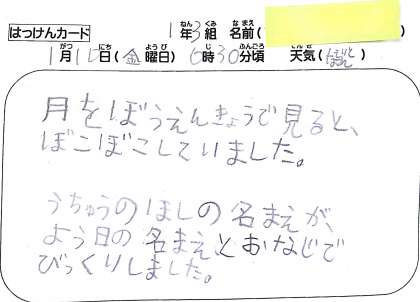 はっけんカード 1年3組 名前( )
1月1 日(金曜日) 6時30分頃 天気( )
月をぼうえんきょうで見ると、
ぼこぼこしていました。
うちゅうのほしの名まえが、
よう日の名まえとおなじで
びっくりしました。